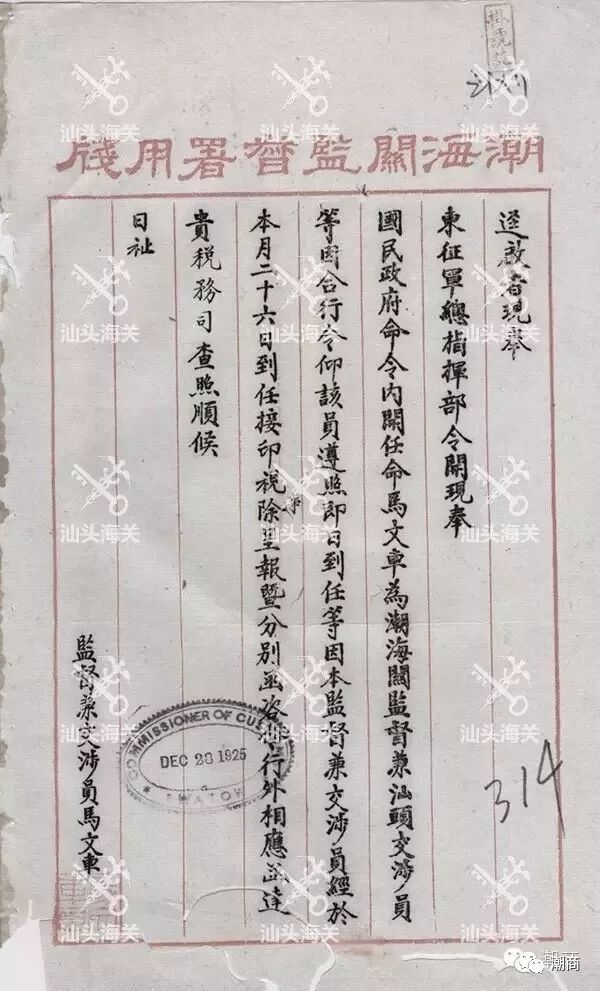 掛號訖
潮海關監督署用牋
逕啟者現奉
東征軍總指揮部令開現奉
國民政府命令內開任命馬文車為潮海關監督兼汕頭交涉員
等因合行令仰該員遵照即日到任等因本監督兼交涉員經於
本月二十六日到任接印視事除呈報暨分別函咨行外相應函達
貴稅務司查照順候
日祉
監督兼交涉員馬文車
COMMISSIONER OF CUSTOMS
DEC 28 1925
SWATOW
314
汕头海关
潮商